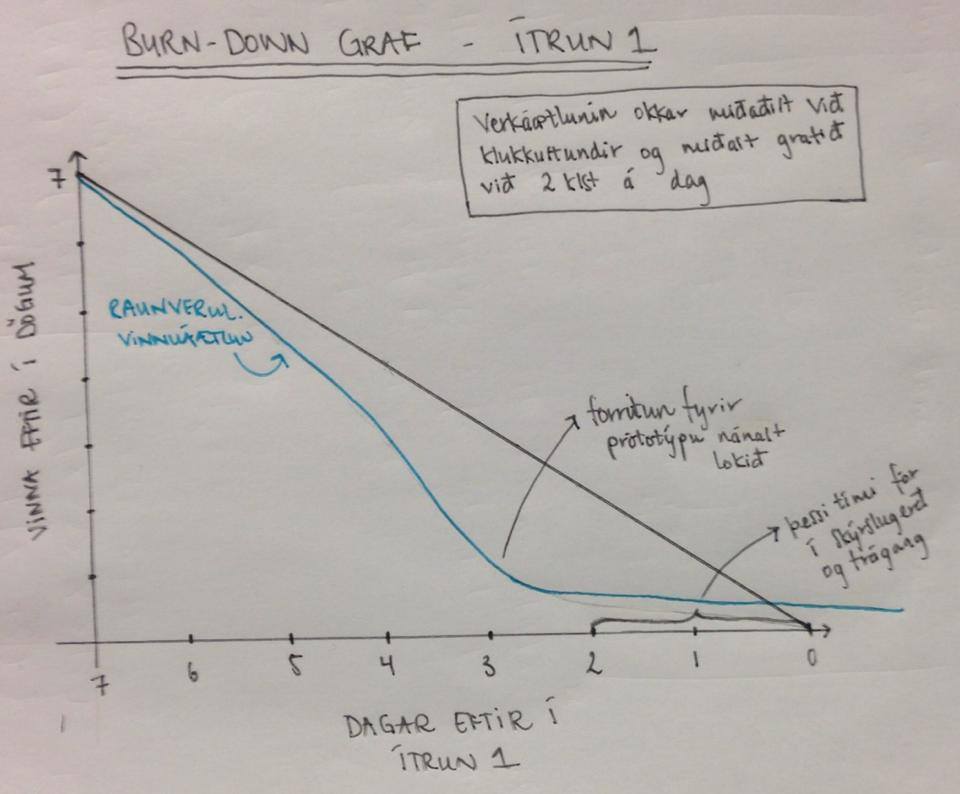 BURN-DOWN GRAF - ÍTRUN 1
Verkáætlunin okkar miðaðist við
klukkustundir og miðast grafið
við 2 klst á dag
7
RAUNVERUL.
VINNUÁÆTLUN
VINNA EFTIR Í DÖGUM
forritun fyrir
prótótýpu nánast
lokið
þessi tími fór
í skýrslugerð
og frágang
7 6 5 4 3 2 1 0
DAGAR EFTIR Í
ÍTRUN 1